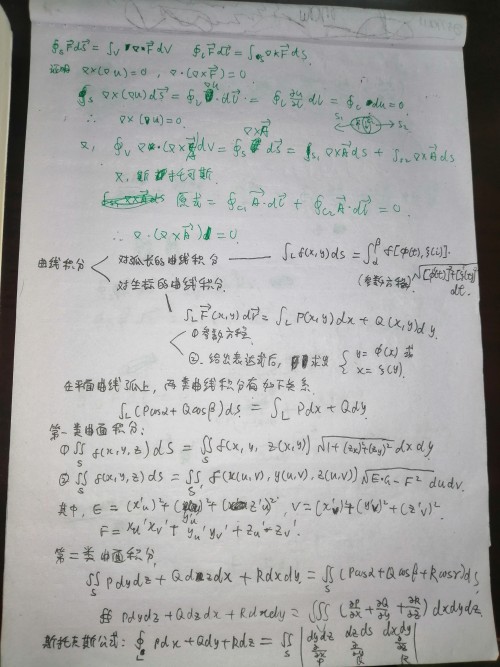 ∮_S F⃗ dS⃗ = ∫_V ∇·F⃗ dV   ∮_L F⃗ dl⃗ = ∫_S ∇×F⃗ dS.
证明 ∇×(∇u)=0, ∇·(∇×F⃗)=0
∮_S ∇×(∇u)dS⃗ = ∮_L ∇u·dl⃗ = ∮_L ∂u/∂l dl = ∮_L du=0
∴ ∇×(∇u)=0.   S₁ S₂
又, ∮_V ∇·(∇×A⃗)dV = ∮_S ∇×A⃗ dS⃗ = ∮_S₁ ∇×A⃗ dS + ∫_S₂ ∇×A⃗ dS
又, 斯托可斯
原式 = ∮_C₁ A⃗·dl⃗ + ∮_C₂ A⃗·dl⃗ = 0.
∴ ∇·(∇×A⃗)=0.
曲线积分
对弧长的曲线积分 —— ∫_L f(x,y)ds = ∫_α^β f[φ(t), ξ(t)]·
(参数方程) √([φ'(t)]²+[ξ'(t)]²) dt.
对坐标的曲线积分
∫_L F⃗(x,y)dr⃗ = ∫_L P(x,y)dx + Q(x,y)dy.
①参数方程
②给出表达式后, 求出 { y=φ(x) 或 x=ξ(y).
在平面曲线弧上, 两类曲线积分有如下关系
∫_L (Pcosα+Qcosβ)ds = ∫_L Pdx+Qdy.
第一类曲面积分:
①∬_S f(x,y,z)dS = ∬_S f(x, y, z(x,y)) √(1+(zx)²+(zy)²) dxdy
②∬_S f(x,y,z)dS = ∬_S f(x(u,v), y(u,v), z(u,v)) √(E·G-F²) dudv.
其中, E = (x'u)²+(y'u)²+(z'u)², V=(x'v)²+(y'v)²+(z'v)².
F = xu'xv'+yu'yv'+zu'·zv'.
第二类曲面积分
∬_S Pdydz + Qdzdx + Rdxdy = ∬_S (Pcosα+Qcosβ+Rcosγ)ds
∯ Pdydz + Qdzdx + Rdxdy = ∭ (∂P/∂x+∂Q/∂y+∂R/∂z) dxdydz.
斯托克斯公式: ∮_L Pdx+Qdy+Rdz = ∬_S | dydz dzdx dxdy